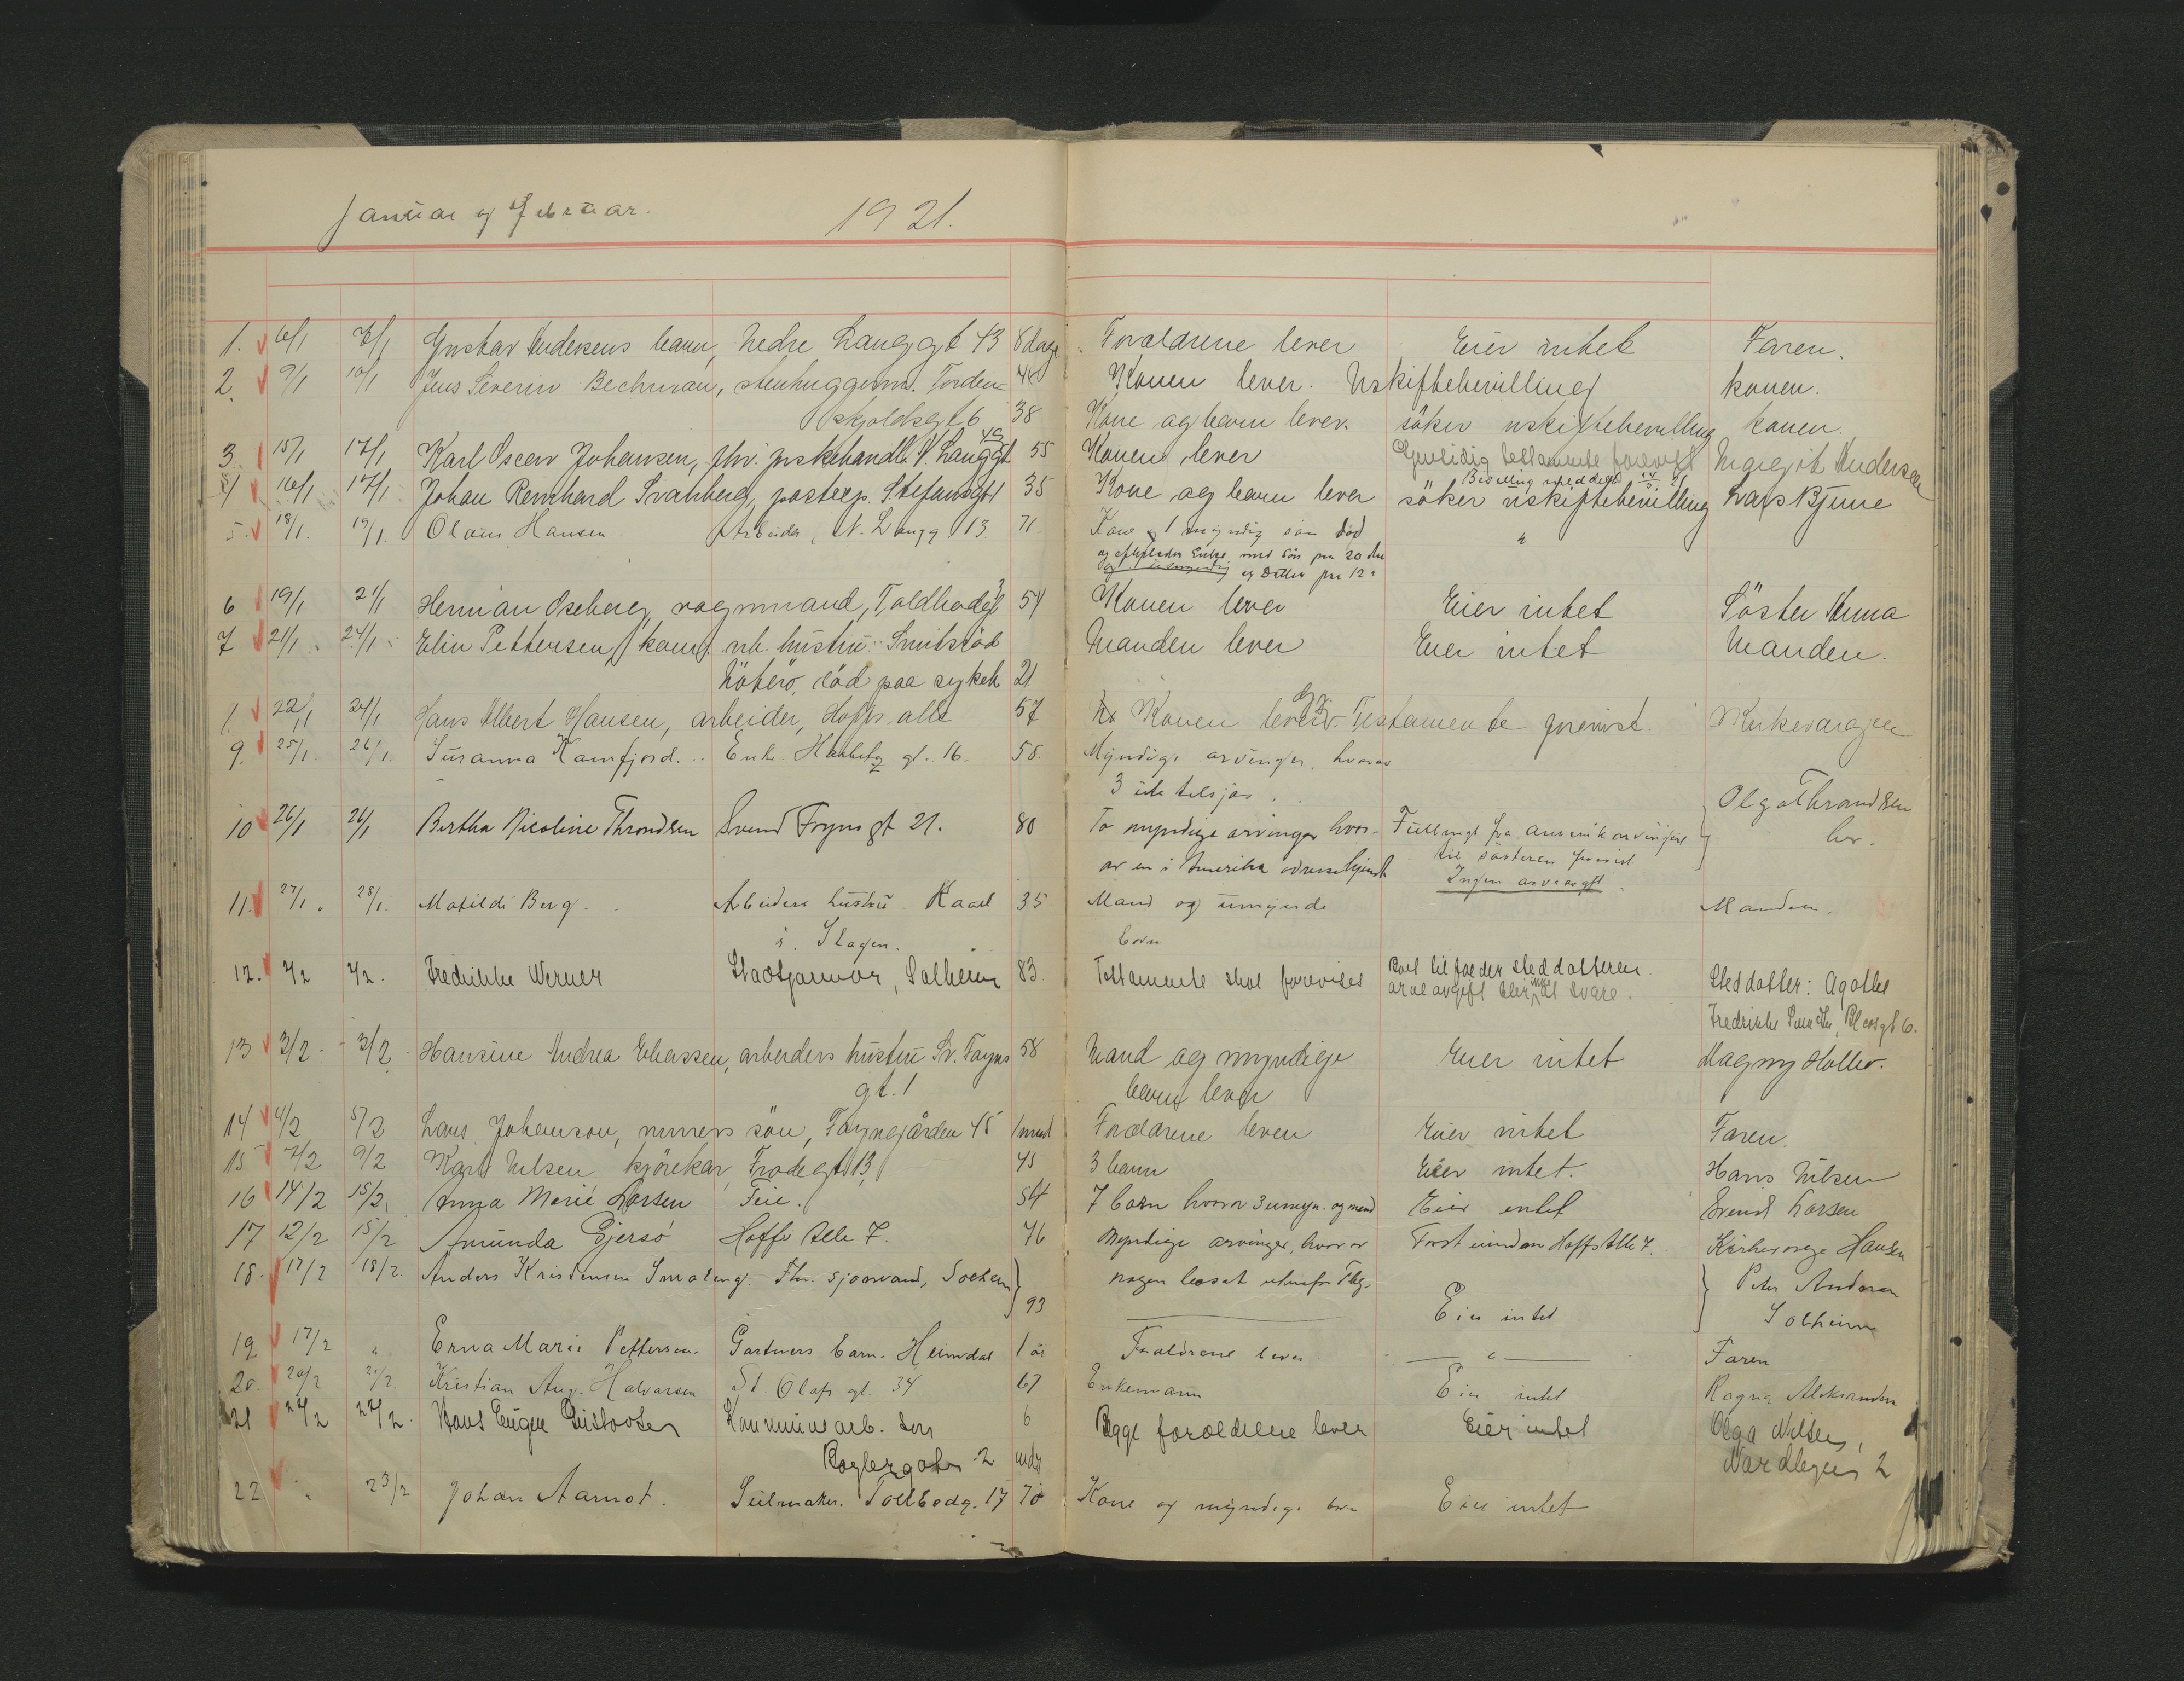 Januar og Februar.
1921.
1. 6/1 7/1 Gustav Andersens barn, Nedre Langgt 43 8 dage Forældrene lever Eier intet Faren.
2. 9/1 10/1 Jens Severin Bechman, stenhuggerm. Torden- 44 Konen lever. Uskiftebevilling konen.
skjoldsgt 6 38 Kone og barn lever. søker uskiftebevilling konen.
3. 15/1 17/1 Karl Oscar Johansen, fhv. fiskehandl. N. Langgt 55 Konen lever Gjensidig testamente forevist Margit Andersen
4 16/1 17/1 Johan Reinhard Svanberg, postexp. Stefansgt 1 35 Kone og barn lever søker uskiftebevilling Lars Bjune
Bevilling meddelt
5. 18/1. 19/1. Olaus Hansen Arbeider, N. Langg 13 71. Kone og 1 myndig søn død "
og efterlader Enke med Søn paa 20 år
og Datter paa 12 "
6 19/1 21/1 Herman Oseberg, vognmand, Toldbodgt 3 54 Konen lever Eier intet Søster Anna
7 21/1 24/1 Elin Pettersen, arb. hustru Smidsrød Manden lever Eier intet Manden.
Nøterø, død paa sykeh 21
22/1 24/1 Hans Albert Hansen, arbeider, Hoffs allé 57 Konen lever. Testamente forevist. Kirkevargen
9. 25/1. 26/1. Susanna Kamfjord. Enke. gt. 16. 58. Myndige arvinger, hvorav
3 ute tilsjøs.
10 26/1 26/1 Bertha Nicoline Throndsen Svend Foyns gt 21. 80 To myndige arvinger hvor- Fullmagt fra amerik arvingen Olga Throndsen
av en i Amerika adresse kjendt til søsteren forevist her.
Ingen arveavgft
11. 27/1. 28/1. Matilde Berg. Arbeiders hustru. Kaael 35 Mand og umynde Manden.
i Slagen. børn
12. 1/2 1/2. Fredrikke Werner Stadsjomor, Solheim 83. Testamente skal forevises Boet tilfalder steddatteren. Steddatter: Agathe
arveavgift blir ikke at svare. Fredrikke
13 3/2 3/2 Hansine Andrea Eliassen, arbeiders hustru Sv. Foyns 58 Mand og myndige Eier intet Magny Holter.
gt. 1 barn lever
14 4/2 5/2 Lars Johanson, murers søn, Foynegården 45 1 mnd Forældrene lever Eier intet Faren.
15 7/2 9/2 Karl Nilsen, kjørekar, Frodegt 13, 45 3 barn Eier intet. Hans Nilsen
16 14/2 15/2 Anna Marie Larsen Feie. 54 7 barn hvorav 3 umyn. og mand Eier intet Svend Larsen
17 12/2 15/2 Amunda Gjersø Hoffs Alle 7. 76 Myndige arvinger, hvorav Hoffs Alle 7. Kirkeverge Hansen
18. 17/2 18/2. Anders Kristensen Fhv. sjømand, Solheim nogen bosat utenfor Tbg. Peter Andersen
93 Eier intet Solheim
19 17/2 " Erna Marie Pettersen. Gartners barn. Heimdal 1 år Forældrene lever " Faren
20. 20/2 21/2 Kristian Aug. Halvorsen St. Olafs gt. 34 67 Enkemann Eier intet Ragna Aleksandersen
21 22/2 22/2. Hans Eugen Gustavsen Kommunearb. søn 6 Begge forældrene lever Eier intet Olga Nilsen,
Baglergaten 2 mdr Nordbyen 2
22 " 23/2 Johan Aamot. Seilmaker. Tollbodg. 17 70 Kone og myndige børn Eier intet